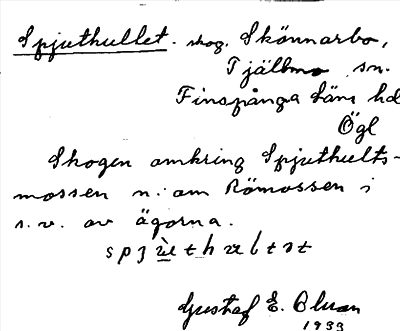 Spjuthultet. skog. Skönnarbo,
Tjällmo sn.
Finspånga läns hd
Ögl
Skogen omkring Spjuthults-
mossen n. om Römossen i
s.v. av ägorna.
Gustaf E.
1933